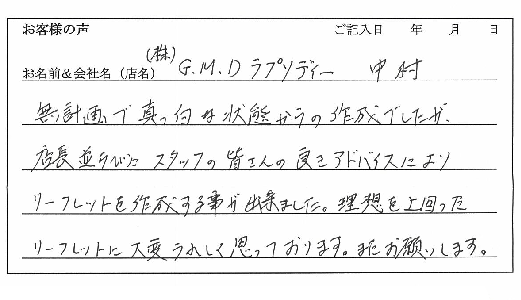 お客様の声 ご記入日 年 月 日
お名前&会社名（店名） (株) G.M.D ラプソディー 中村
無計画で真っ白な状態からの作成でしたが、
店長並びにスタッフの皆さんの良きアドバイスにより
リーフレットを作成する事が出来ました。理想を上回った
リーフレットに大変うれしく思っております。またお願いします。